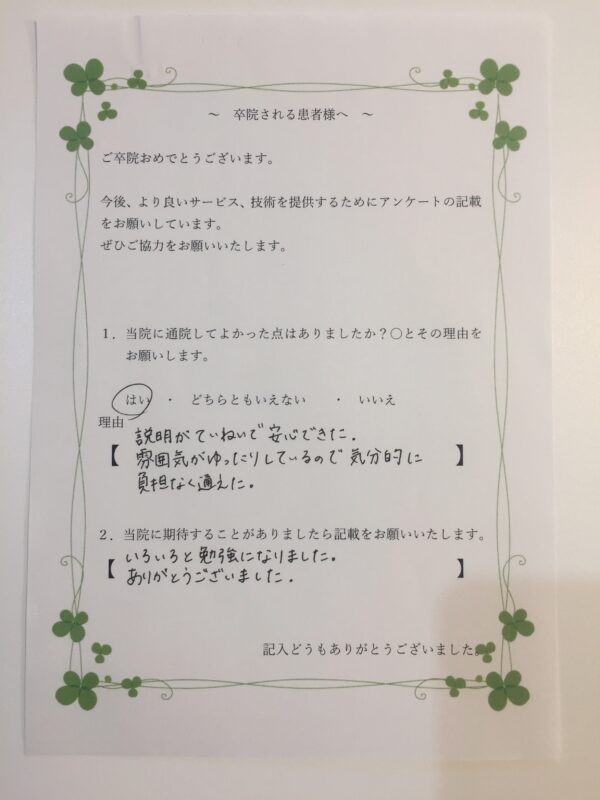 ～　卒院される患者様へ　～
ご卒院おめでとうございます。
今後、より良いサービス、技術を提供するためにアンケートの記載
をお願いしています。
ぜひご協力をお願いいたします。
１．当院に通院してよかった点はありましたか？〇とその理由を
お願いします。
はい　・　どちらともいえない　　・　いいえ
理由
【 説明がていねいで安心できた。
雰囲気がゆったりしているので気分的に 】
負担なく通えた。
２．当院に期待することがありましたら記載をお願いいたします。
【 いろいろと勉強になりました。 】
ありがとうございました。
記入どうもありがとうございました。